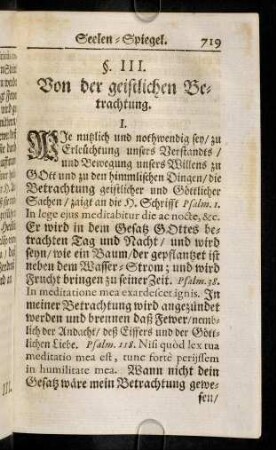 Seelen-Spiegel. 719
§. III.
Von der geistlichen Be-
trachtung.
I.
WJe nutzlich und nothwendig sey/ zu
Erleuchtung unsers Verstandts/
und Bewegung unsers Willens zu
GOtt und zu den himmlischen Dingen/ die
Betrachtung geistlicher und Göttlicher
Sachen/ zaigt an die H. Schrifft Psalm. 1.
In lege ejus meditabitur die ac nocte, &c.
Er wird in dem Gesatz GOttes be-
trachten Tag und Nacht/ und wird
seyn/ wie ein Baum/ der gepflantzet ist
neben dem Wasser-Strom; und wird
Frucht bringen zu seiner Zeit. Psalm. 38.
In meditatione mea exardescet ignis. In
meiner Betrachtung wird angezündet
werden und brennen daß Fewer/ nemb-
lich der Andacht/ deß Eiffers und der Gött-
lichen Liebe. Psalm. 118. Nisi quòd lex tua
meditatio mea est, tunc fortè perijssem
in humilitate mea. Wann nicht dein
Gesatz wäre mein Betrachtung gewe-
sen/